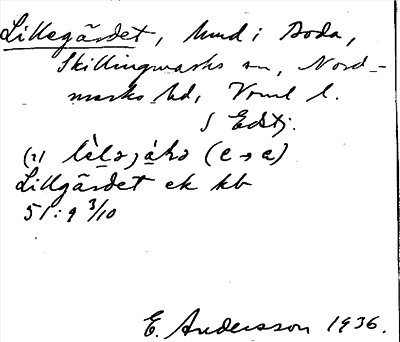 Lillegärdet, hmd i Boda,
Skillingmarks sn, Nord-
marks hd, Vrml l.
S Edstj.
(2)
Lillgärdet ek kb
51:9 3/10
E. Andersson 1936.